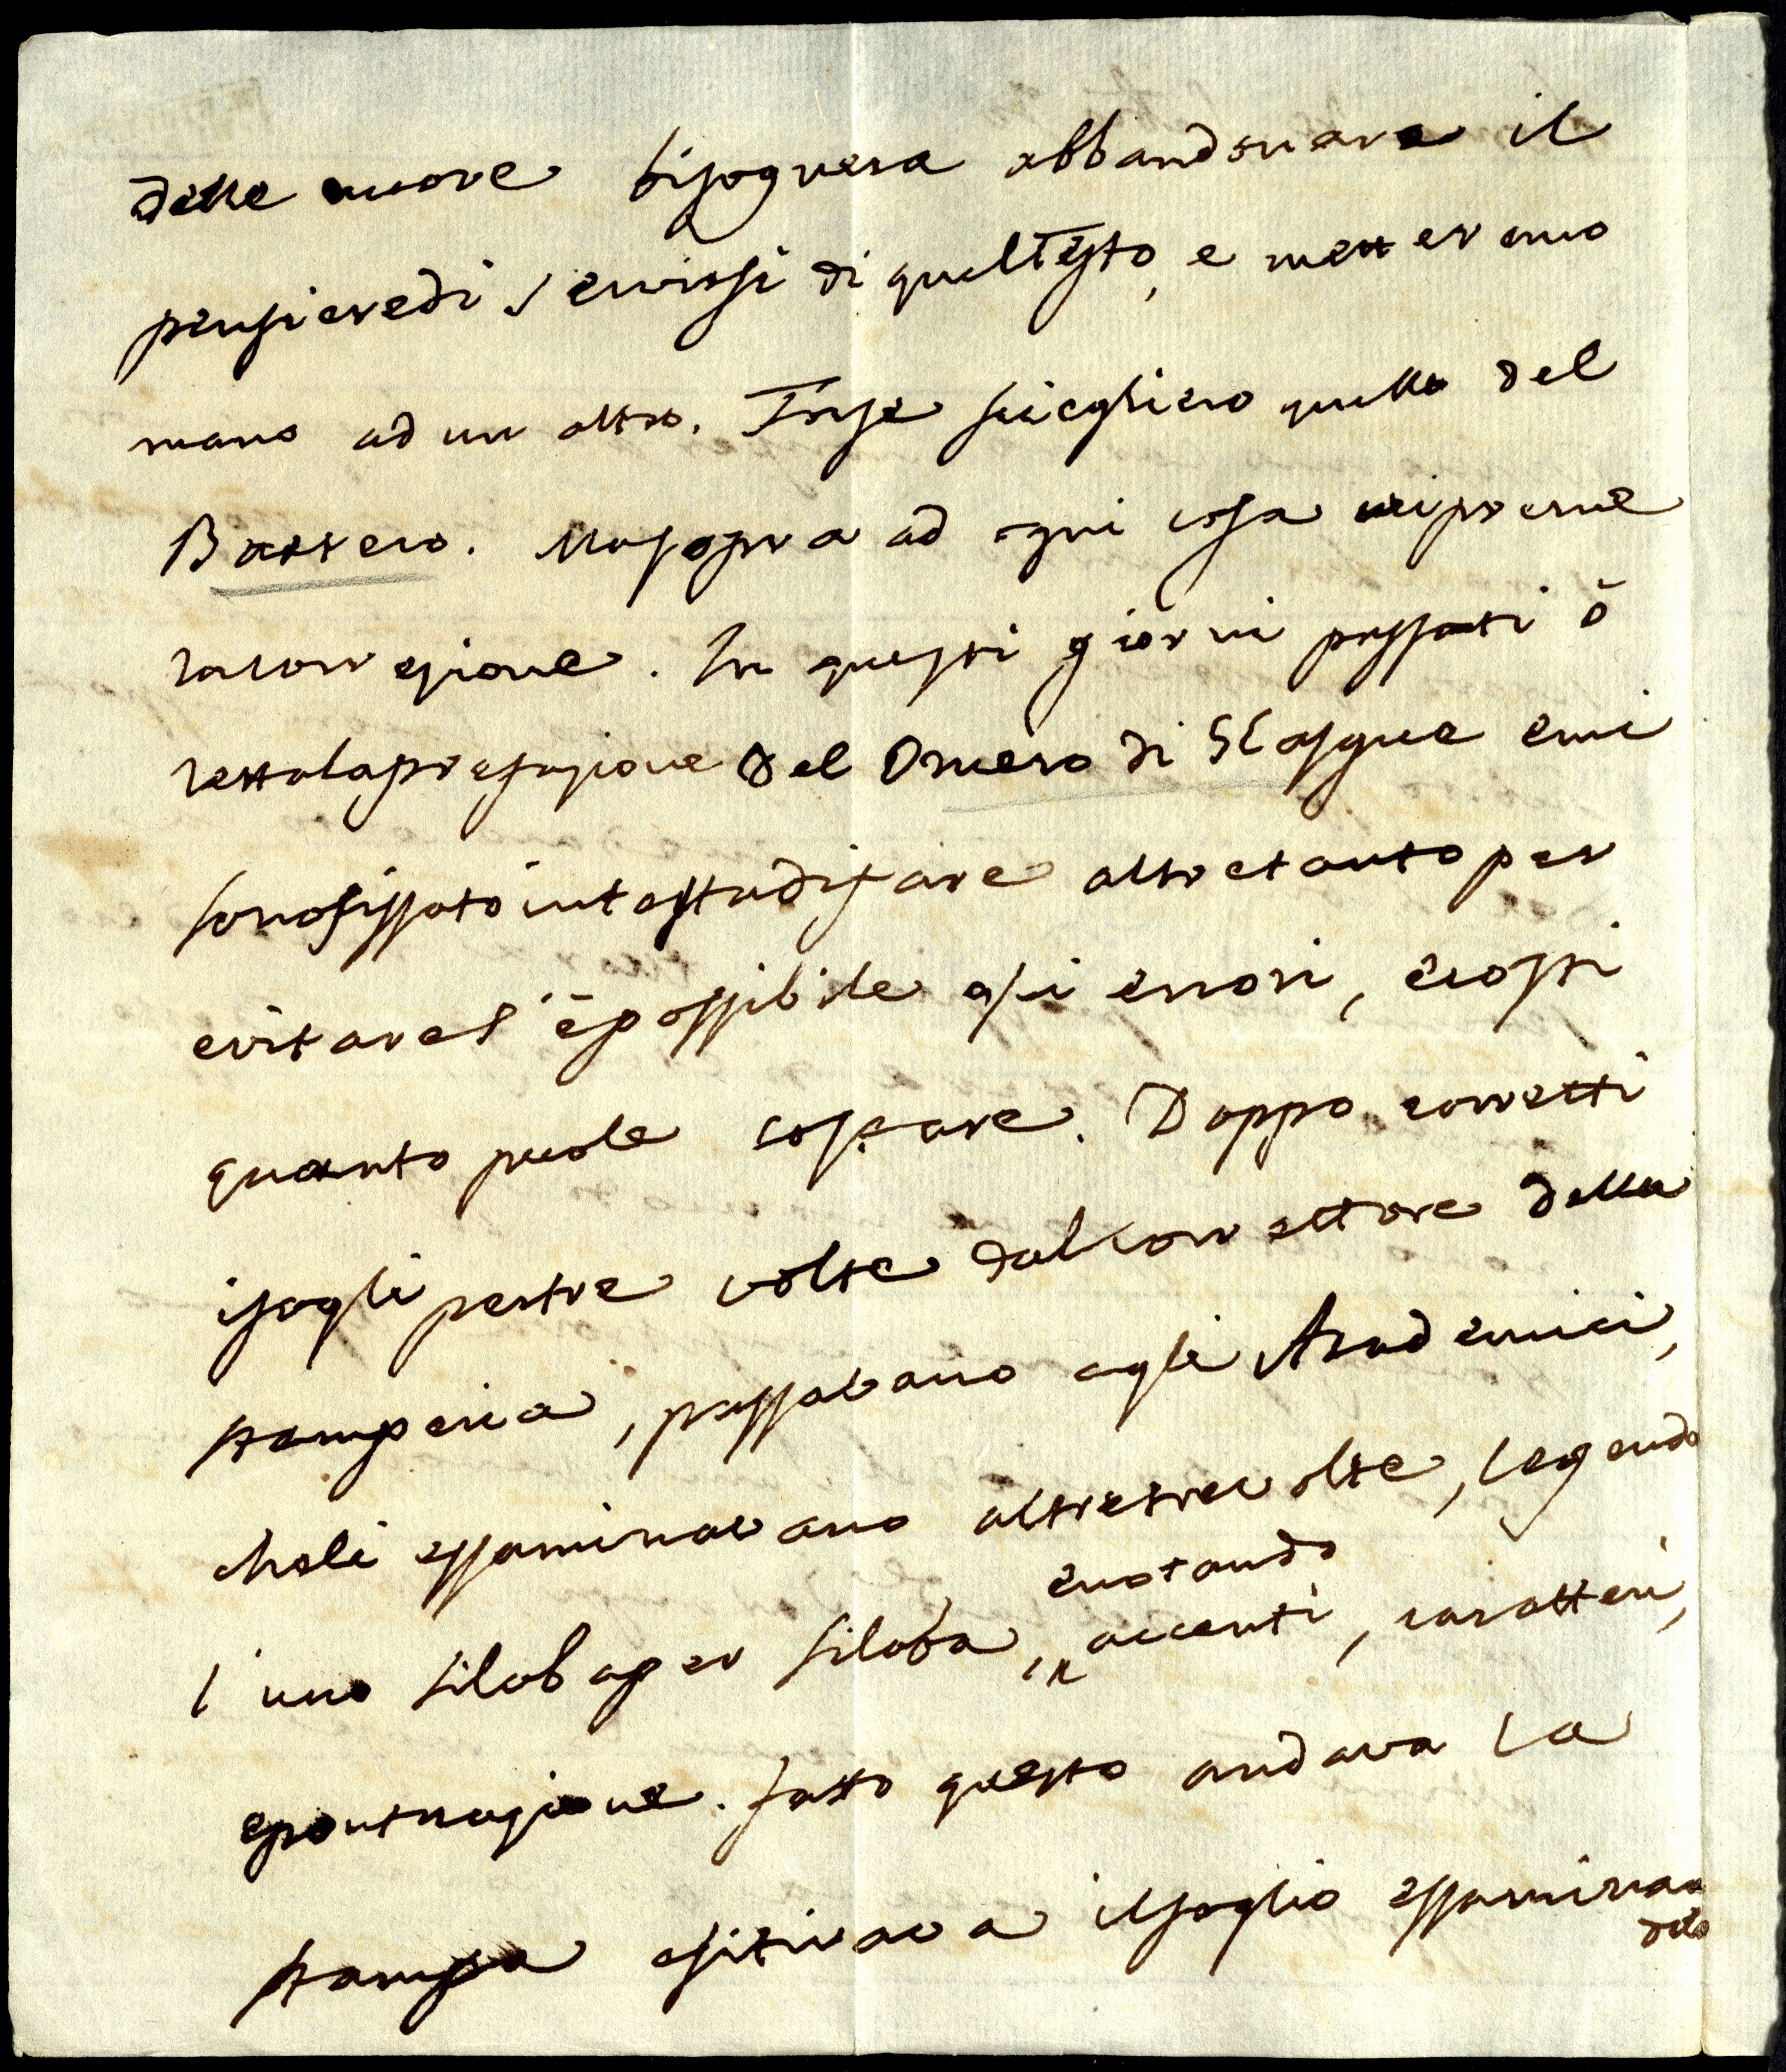 delle nuove bisognera abbandonare il
pensiere di servirsi di quel Testo, e metteremo
mano ad un altro. Forse sciegliero quello del
Bassero. Ma sopra ad ogni cosa mi preme
la correzione. In questi giorni passati ò
letto la prefazione del Omero di Glasgue e mi
sono fissato in testa di fare altretanto per
evitare s'è possibile gli errori, e costi
quanto puole costare. Doppo corretti
i fogli per tre volte dal correttore della
stamperia, passavano agli Academici,
che li essaminavano altre tre volte, legendo
l'uno silaba per silaba, e notando accenti, caratteri,
e pontuazione. fatto questo andava la
stampa e si tirava il foglio essaminan
dolo